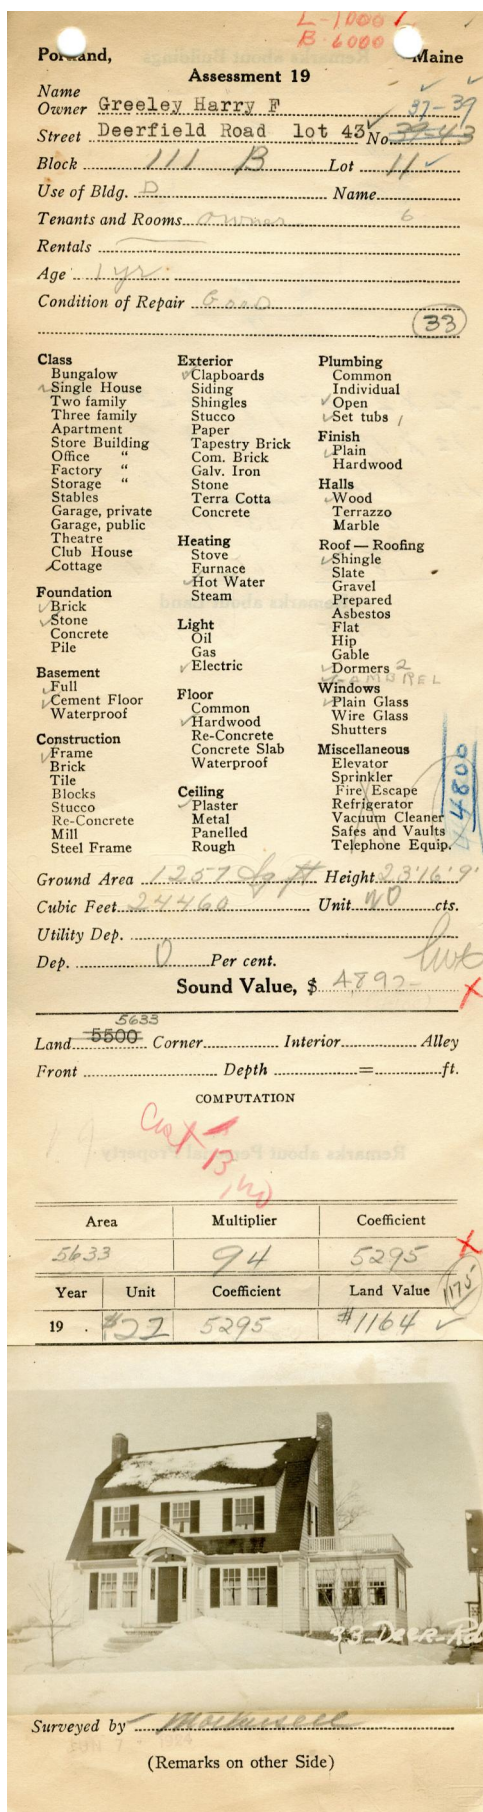 L-1000
B-6000
Portland, Maine
Assessment 19
Name
Owner Greeley Harry F 37-39
Street Deerfield Road lot 43 No. 39-43
Block 111 B Lot 11
Use of Bldg. D Name
Tenants and Rooms owner 6
Rentals
Age 1 yr
Condition of Repair Good
33
Class
Bungalow
Single House
Two family
Three family
Apartment
Store Building
Office "
Factory "
Storage "
Stables
Garage, private
Garage, public
Theatre
Club House
Cottage
Foundation
Brick
Stone
Concrete
Pile
Basement
Full
Cement Floor
Waterproof
Construction
Frame
Brick
Tile
Blocks
Stucco
Re-Concrete
Mill
Steel Frame
Exterior
Clapboards
Siding
Shingles
Stucco
Paper
Tapestry Brick
Com. Brick
Galv. Iron
Stone
Terra Cotta
Concrete
Heating
Stove
Furnace
Hot Water
Steam
Light
Oil
Gas
Electric
Floor
Common
Hardwood
Re-Concrete
Concrete Slab
Waterproof
Ceiling
Plaster
Metal
Panelled
Rough
Plumbing
Common
Individual
Open
Set tubs 1
Finish
Plain
Hardwood
Halls
Wood
Terrazzo
Marble
Roof — Roofing
Shingle
Slate
Gravel
Prepared
Asbestos
Flat
Hip
Gable
Dormers 2
GAMBREL
Windows
Plain Glass
Wire Glass
Shutters
Miscellaneous
Elevator
Sprinkler
Fire Escape
Refrigerator
Vacuum Cleaner
Safes and Vaults
Telephone Equip.
4800
Ground Area 1257 Sq ft Height 23'16'9'
Cubic Feet 24460 Unit 20 cts.
Utility Dep.
Dep. 0 Per cent.
Sound Value, $ 4892-
5633
Land 5500 Corner Interior Alley
Front Depth = ft.
COMPUTATION
Area Multiplier Coefficient
5633 94 5295
Year Unit Coefficient Land Value 1175
19 . $22 5295 $1164
33-Deer-Rd
Surveyed by
(Remarks on other Side)